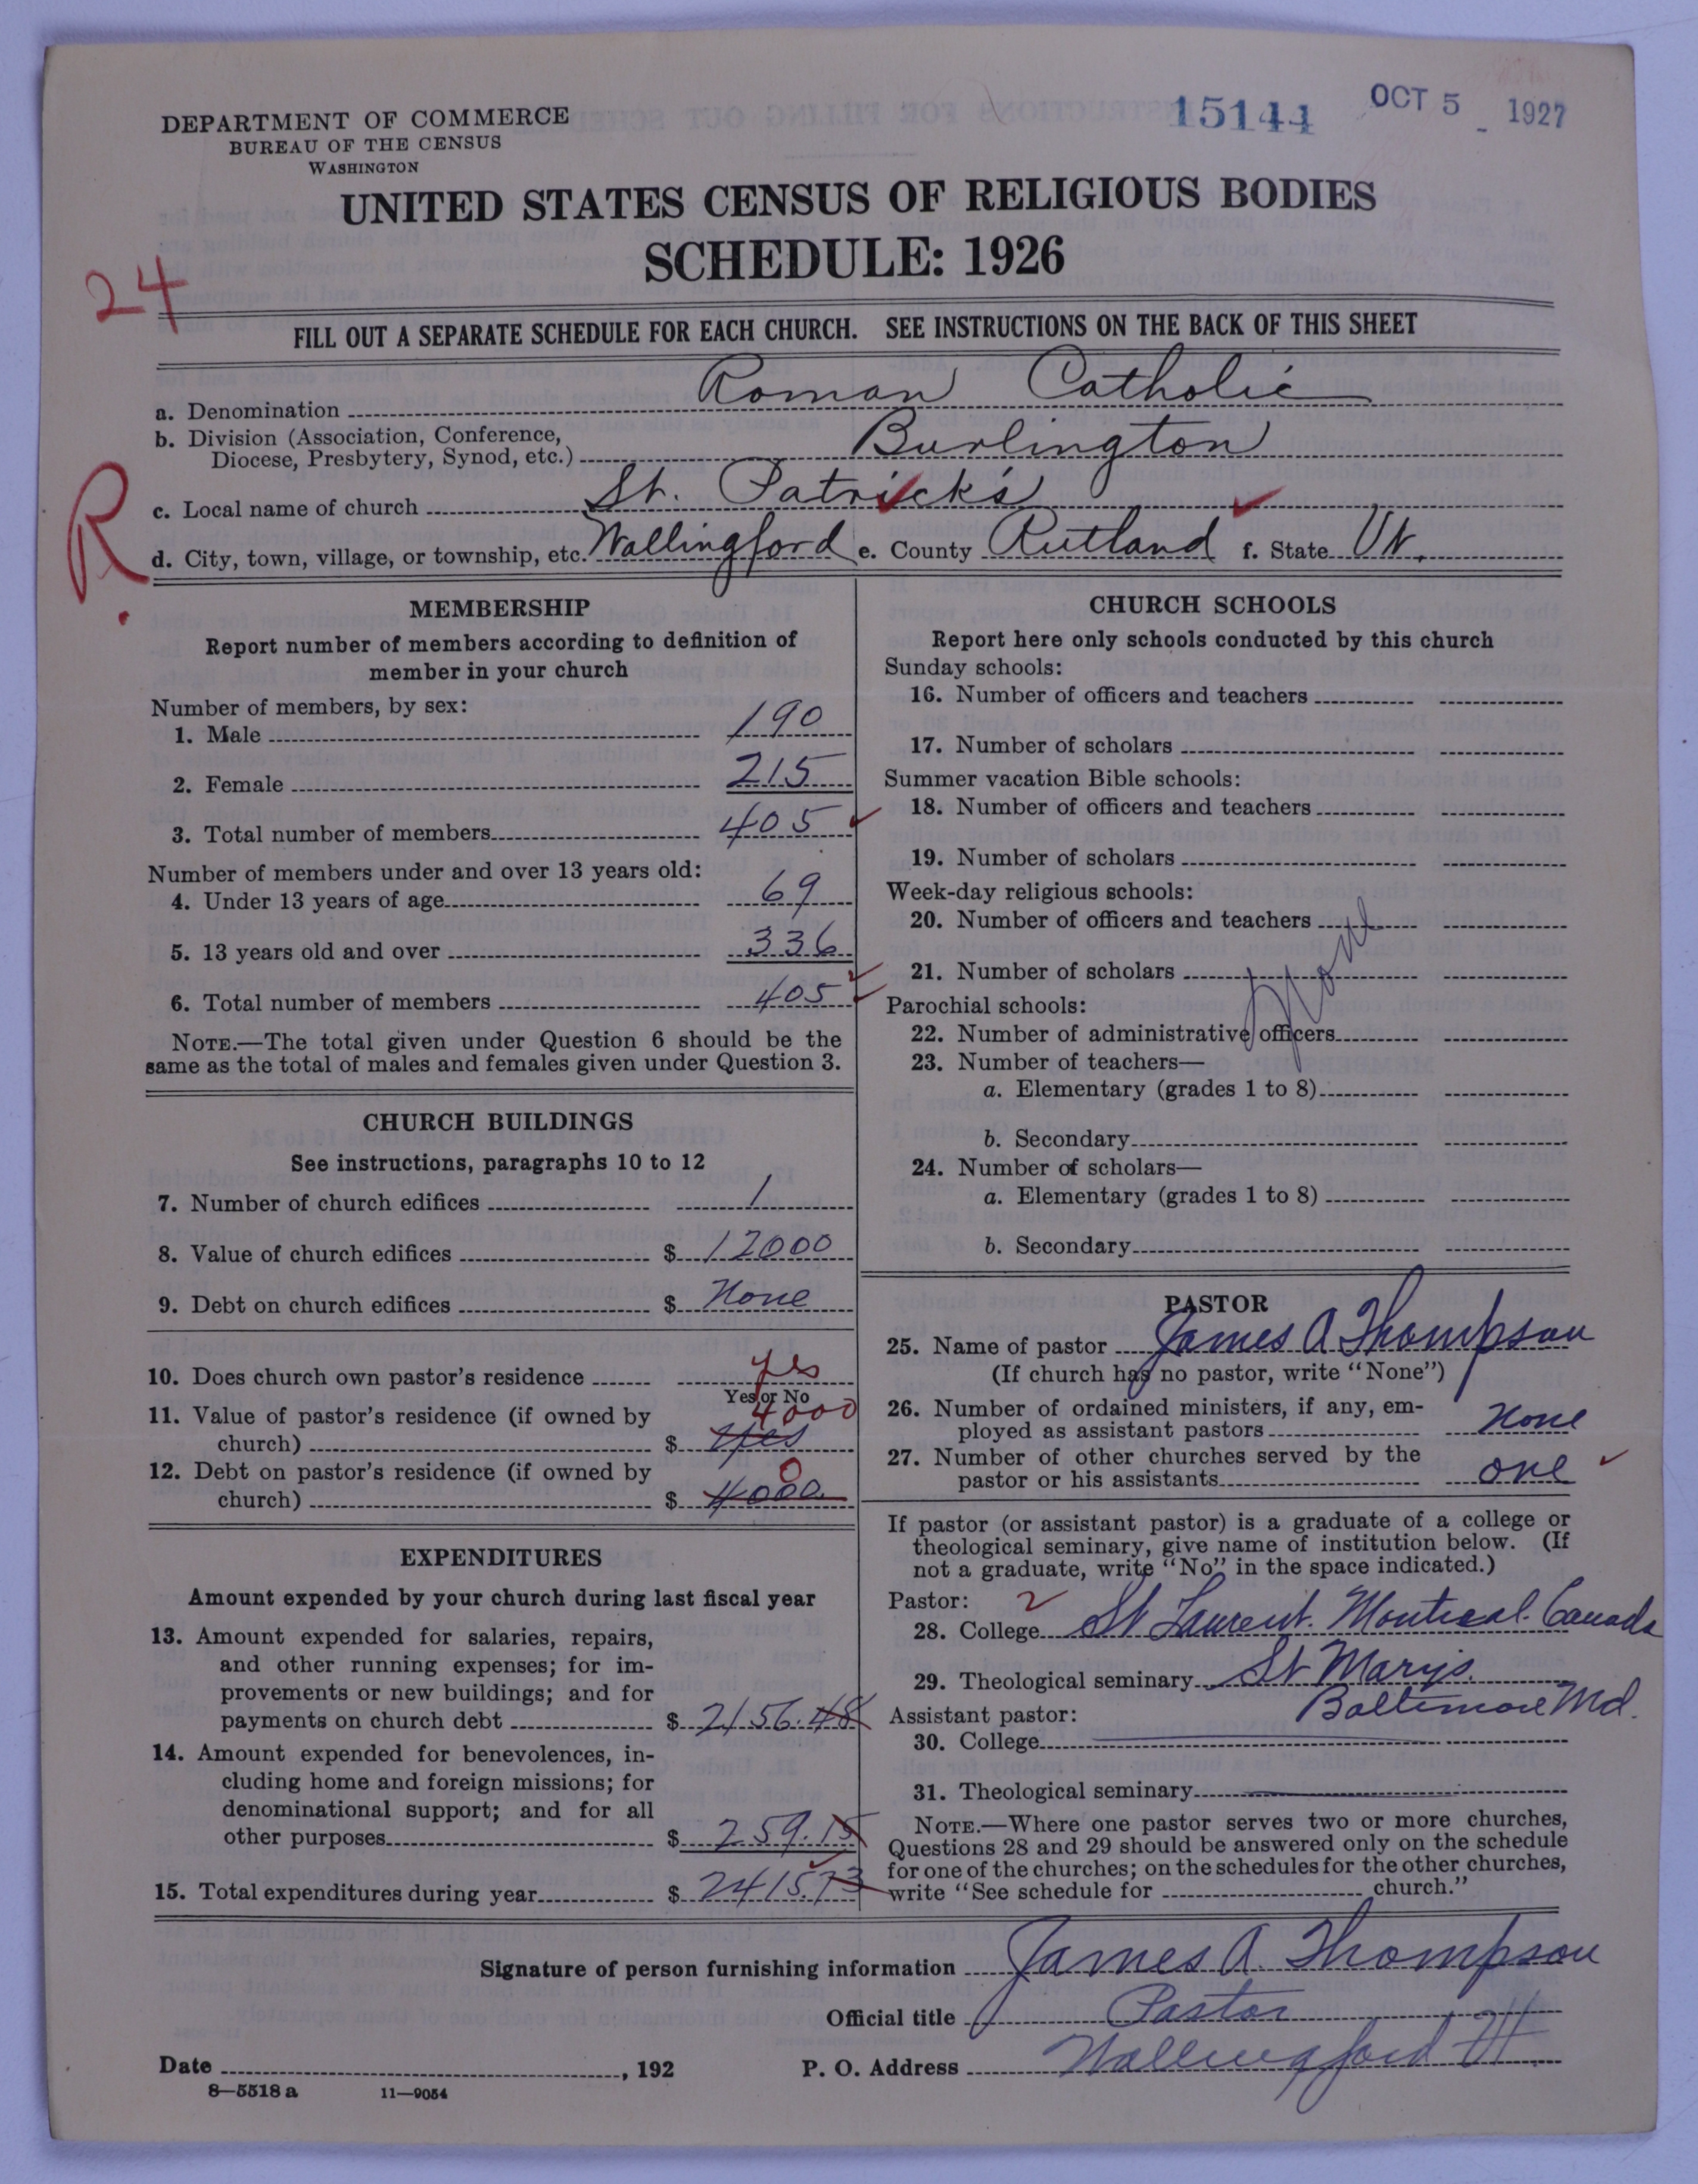 15144 OCT 5 1927
DEPARTMENT OF COMMERCE
BUREAU OF THE CENSUS
WASHINGTON
UNITED STATES CENSUS OF RELIGIOUS BODIES
SCHEDULE: 1926
24
FILL OUT A SEPARATE SCHEDULE FOR EACH CHURCH. SEE INSTRUCTIONS ON THE BACK OF THIS SHEET
a. Denomination Roman Catholic
b. Division (Association, Conference,
Diocese, Presbytery, Synod, etc.) Burlington
R.
c. Local name of church St. Patrick's
d. City, town, village, or township, etc. Wallingford e. County Rutland f. State Vt.
MEMBERSHIP
Report number of members according to definition of
member in your church
Number of members, by sex:
1. Male 190
2. Female 215
3. Total number of members 405
Number of members under and over 13 years old:
4. Under 13 years of age 69
5. 13 years old and over 336
6. Total number of members 405
NOTE.—The total given under Question 6 should be the
same as the total of males and females given under Question 3.
CHURCH BUILDINGS
See instructions, paragraphs 10 to 12
7. Number of church edifices 1
8. Value of church edifices $ 12000
9. Debt on church edifices $ None
10. Does church own pastor's residence yes
Yes or No
11. Value of pastor's residence (if owned by 4000
church) $ Yes
12. Debt on pastor's residence (if owned by 0
church) $ 4000
EXPENDITURES
Amount expended by your church during last fiscal year
13. Amount expended for salaries, repairs,
and other running expenses; for im-
provements or new buildings; and for
payments on church debt $ 2156.48
14. Amount expended for benevolences, in-
cluding home and foreign missions; for
denominational support; and for all
other purposes $ 259.15
15. Total expenditures during year $ 2415.73
CHURCH SCHOOLS
Report here only schools conducted by this church
Sunday schools:
16. Number of officers and teachers
17. Number of scholars
Summer vacation Bible schools:
18. Number of officers and teachers
19. Number of scholars
Week-day religious schools:
20. Number of officers and teachers
21. Number of scholars None
Parochial schools:
22. Number of administrative officers
23. Number of teachers—
a. Elementary (grades 1 to 8)
b. Secondary
24. Number of scholars—
a. Elementary (grades 1 to 8)
b. Secondary
PASTOR
25. Name of pastor James A Thompson
(If church has no pastor, write "None")
26. Number of ordained ministers, if any, em-
ployed as assistant pastors None
27. Number of other churches served by the
pastor or his assistants one
If pastor (or assistant pastor) is a graduate of a college or
theological seminary, give name of institution below. (If
not a graduate, write "No" in the space indicated.)
Pastor: 2
28. College St Laurent. Montreal. Canada
29. Theological seminary St Marys.
Baltimore Md.
Assistant pastor:
30. College
31. Theological seminary
NOTE.—Where one pastor serves two or more churches,
Questions 28 and 29 should be answered only on the schedule
for one of the churches; on the schedules for the other churches,
write "See schedule for church."
Signature of person furnishing information James A. Thompson
Official title Pastor
Date , 192 P. O. Address Wallingford Vt.
8—5518 a 11—9054